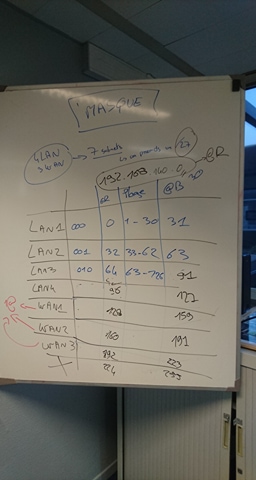 MASQUE
4LAN
3WAN
7 subnets
/27
192 168 160 0
@R
@R Plage @B
LAN1 000 0 1-30 31
LAN2 001 32 33-62 63
LAN3 010 64 91
LAN4 96 127
WAN1 128 159
WAN2 160 191
WAN3 192 223
224 255